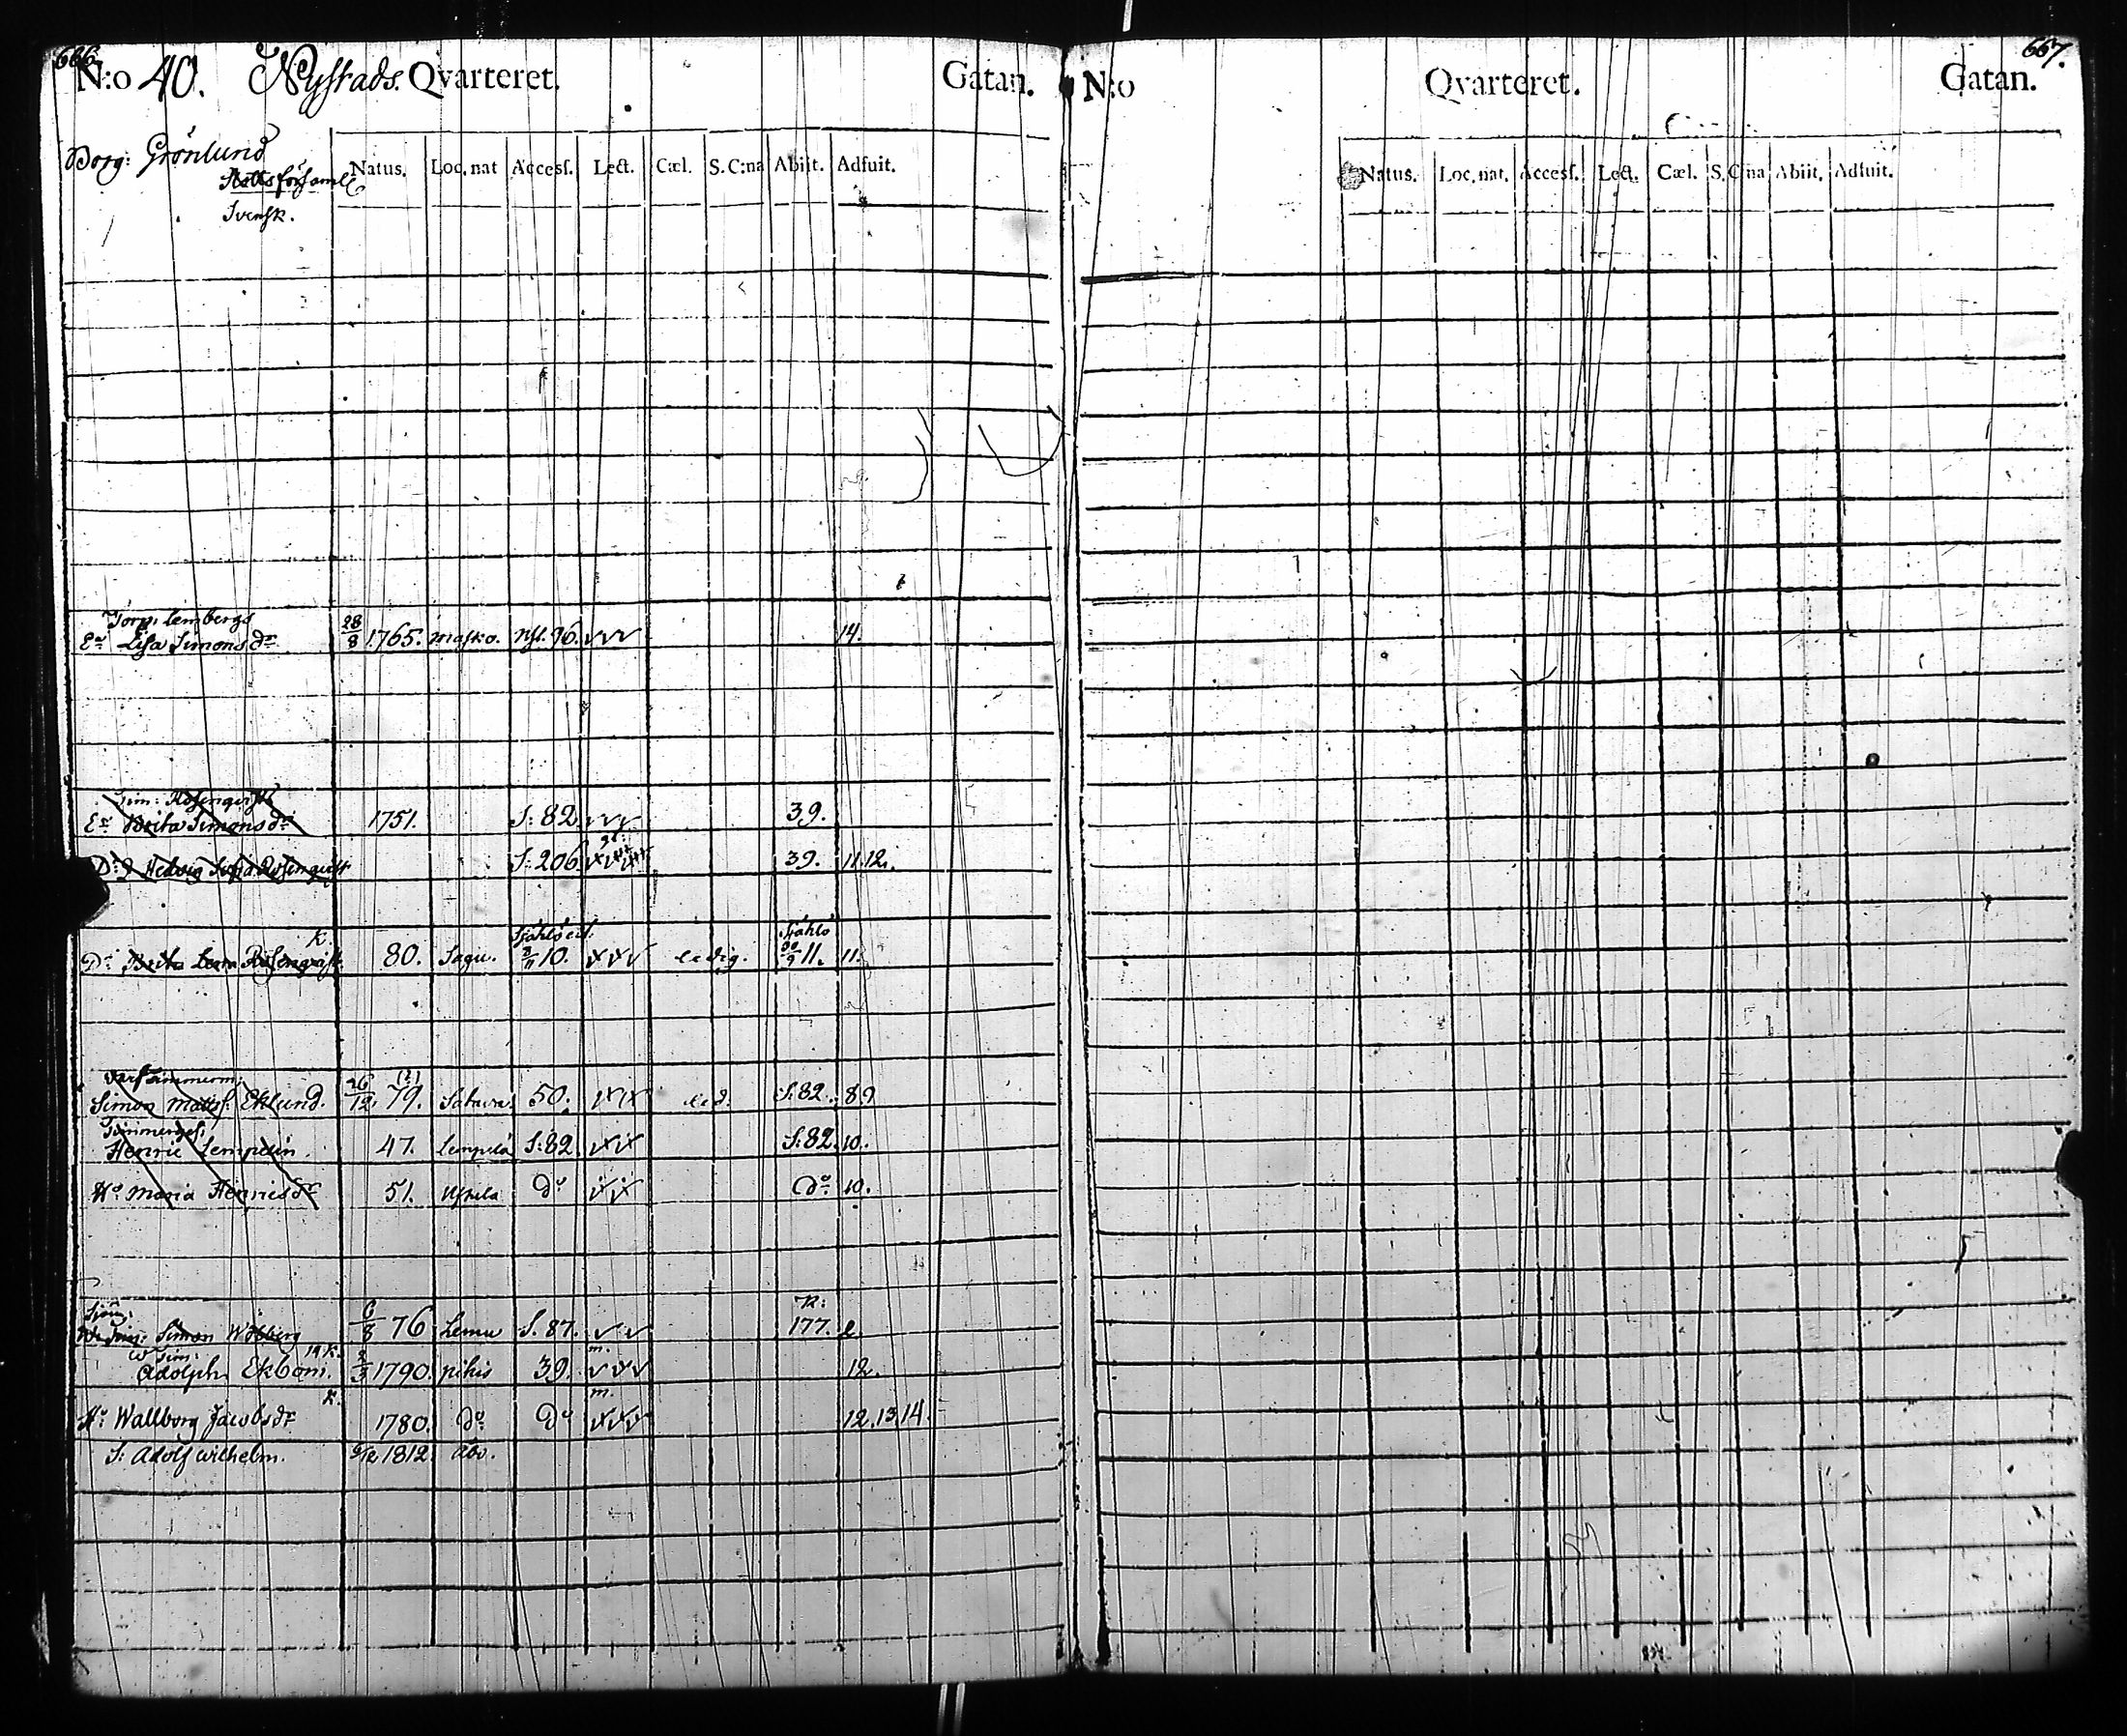 666.
N:o 40. Nystads. Qvarteret. Gatan.
Borg: Grönlund
Slottsförsaml
Svensk.
Natus. Loc. nat Access. Lect. Cæl. S. C:na Abiit. Adfuit.
Torp: Lembergs
Ea Lisa Simonsdr 28/8 1765. Masko. Nst. 96. 14.
Tim: Rosenqvists
Ea Brita Simonsdr 1751. S. 82 39.
Dr Hedvig Sofia Rosenqvist S. 206 39. 11.12.
K. Sjählö
Dr Brita Lena Rosenqvist 80. Sagu. 10. ledig. 11. 11.
Timmerm:
Simon Matts: Eklund. 26/12 79. 50. led. S. 82. 8 9
Timmerges:
Henric Lempelin. 47. Lempelä S. 82 S. 82. 10.
Ho Maria Henricsdr 51. Uskela do do 10.
Sjöm:
Simon Wikberg 6/8 76 Lemu S. 87. 177.
Adolph Ekbom. 1790. pikis 39. 12.
Ho Wallborg Jacobsdr 1780. do do 12.13.14.
S: Adolf Wilhelm. 1812. Åbo.
667.
N:o Qvarteret. Gatan.
Natus. Loc. nat. Access. Lect. Cæl. S. C:na Abiit. Adfuit.